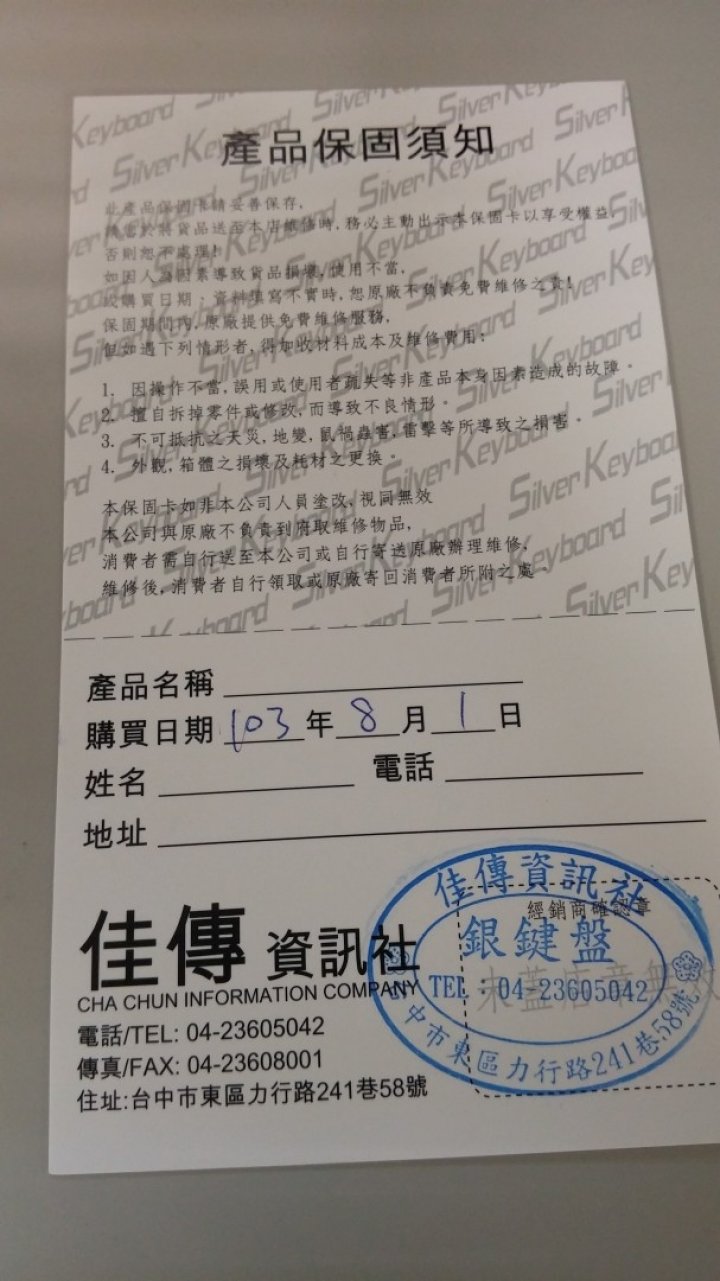 產品保固須知
此產品保固卡請妥善保存,
請當於將貨品送至本店維修時, 務必主動出示本保固卡以享受權益,
否則恕不處理!
如因人為因素導致貨品損壞, 使用不當,
或購買日期; 資料填寫不實時, 恕原廠不負責免費維修之責!
保固期間內, 原廠提供免費維修服務,
但如遇下列情形者, 得加收材料成本及維修費用:
1. 因操作不當, 誤用或使用者疏失等非產品本身因素造成的故障。
2. 擅自拆掉零件或修改, 而導致不良情形。
3. 不可抵抗之天災, 地變, 鼠禍蟲害, 雷擊等所導致之損害。
4. 外觀, 箱體之損壞及耗材之更換。
本保固卡如非本公司人員塗改, 視同無效
本公司與原廠不負責到府取維修物品,
消費者需自行送至本公司或自行寄送原廠辦理維修,
維修後, 消費者自行領取或原廠寄回消費者所附之處。
產品名稱
購買日期 103 年 8 月 1 日
姓名 電話
地址
佳傳 資訊社
CHA CHUN INFORMATION COMPANY
電話/TEL: 04-23605042
傳真/FAX: 04-23608001
住址:台中市東區力行路241巷58號
經銷商確認章
未蓋店章無效
佳傳資訊社
銀鍵盤
TEL:04-23605042
台中市東區力行路241巷58號
Silver Keyboard